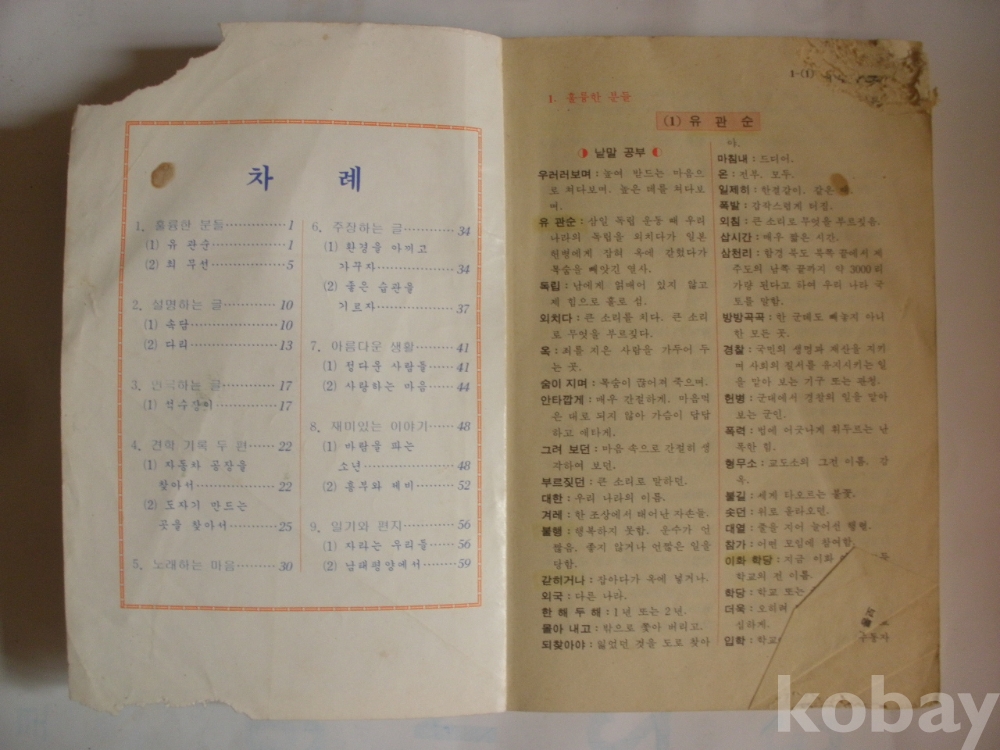 차 례
1. 훌륭한 분들 1
(1) 유 관순 1
(2) 최 무선 5
2. 설명하는 글 10
(1) 속담 10
(2) 다리 13
3. 하는 글 17
(1) 석수장이 17
4. 견학 기록 두 편 22
(1) 자동차 공장을
찾아서 22
(2) 도자기 만드는
곳을 찾아서 25
5. 노래하는 마음 30
6. 주장하는 글 34
(1) 환경을 아끼고
가꾸자 34
(2) 좋은 습관을
기르자 37
7. 아름다운 생활 41
(1) 정다운 사람들 41
(2) 사랑하는 마음 44
8. 재미있는 이야기 48
(1) 바람을 파는
소년 48
(2) 흥부와 제비 52
9. 일기와 편지 56
(1) 자라는 우리들 56
(2) 남태평양에서 59
1-(1)
1. 훌륭한 분들
(1) 유 관 순
낱말 공부
우러러보며 : 높여 받드는 마음으
로 쳐다보며. 높은 데를 쳐다보
며.
유 관순 : 삼일 독립 운동 때 우리
나라의 독립을 외치다가 일본
헌병에게 잡혀 옥에 갇혔다가
목숨을 빼앗긴 열사.
독립 : 남에게 얽매여 있지 않고
제 힘으로 홀로 섬.
외치다 : 큰 소리를 치다. 큰 소리
로 무엇을 부르짖다.
옥 : 죄를 지은 사람을 가두어 두
는 곳.
숨이 지며 : 목숨이 끊어져 죽으며.
안타깝게 : 매우 간절하게. 마음먹
은 대로 되지 않아 가슴이 답답
하고 애타게.
그려 보던 : 마음 속으로 간절히 생
각하여 보던.
부르짖던 : 큰 소리로 말하던.
대한 : 우리 나라의 이름.
겨레 : 한 조상에서 태어난 자손들.
불행 : 행복하지 못함. 운수가 언
짢음. 좋지 않거나 언짢은 일을
당함.
갇히거나 : 잡아다가 옥에 넣거나.
외국 : 다른 나라.
한 해 두 해 : 1년 또는 2년.
몰아 내고 : 밖으로 쫓아 버리고.
되찾아야 : 잃었던 것을 도로 찾아
야.
마침내 : 드디어.
온 : 전부. 모두.
일제히 : 한결같이. 같은
폭발 : 갑작스럽게 터짐.
외침 : 큰 소리로 무엇을 부르짖음.
삽시간 : 매우 짧은 시간.
삼천리 : 함경 북도 북쪽 끝에서 제
주도의 남쪽 끝까지 약 3000리
가량 된다고 하여 우리 나라 국
토를 말함.
방방곡곡 : 한 군데도 빼놓지 아니
한 모든 곳.
경찰 : 국민의 생명과 재산을 지키
며 사회의 질서를 유지시키는 일
을 맡아 보는 기구 또는 관청.
헌병 : 군대에서 경찰의 일을 맡아
보는 군인.
폭력 : 법에 어긋나게 휘두르는 난
폭한 힘.
형무소 : 교도소의 그전 이름. 감
옥.
불길 : 세게 타오르는 불꽃.
솟던 : 위로 올라오던.
대열 : 줄을 지어 늘어선 행렬.
참가 : 어떤 모임에 참여함.
이화 학당 : 지금 이화
학교의 전 이름.
학당 : 학교 또는
더욱 : 오히려
심하게.
입학 : 학교
kobay